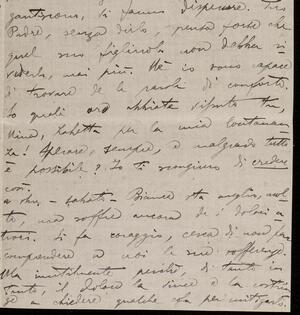 si fanno disperare. Tuo
Padre, senza dirlo, pensa forse che
quel suo figliuolo non debba ri-
vederlo, mai più. Ne io sono capace
di trovare delle parole di conforto.
In quali
per la mia lontanan-
za! Sperare, sempre, e malgrado tutto
è possibile? Io ti scongiuro di credere
così.
sabato - Bianca sta meglio, mol-
to, ma soffre ancora dei dolori a-
troci. Si fa coraggio, cerca di non far
comprendere a noi le sue sofferenze.
Ma inutilmente perchè, di tanto in
tanto, il dolore la vince e la costrin-
ge a chiedere qualche cosa per mitigarlo.